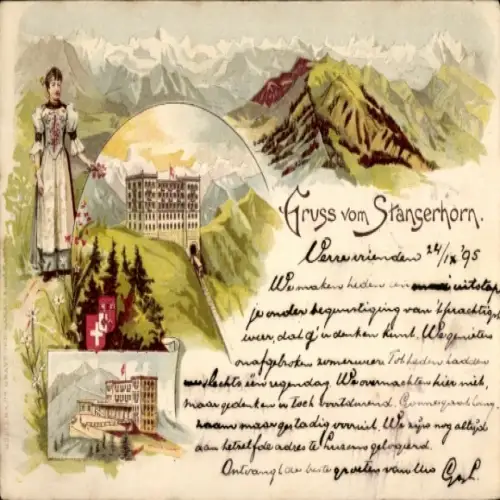 Gruss vom Stanserhorn.
Verre vrienden 24/IX '95
We maken heden een uitstap
je onder begunstiging van 't prachtigst
weer, dat g' u denken kunt. We genieten
onafgebroken zomerweer. Tot heden hadden
we slechts één regendag. We overnachten hier niet,
maar gedenken u toch voortdurend.
zaam maar gestadig vooruit. We zijn nog altijd
aan hetzelfde adres te Luzern gelogeerd.
Ontvangt de beste groeten van Uw